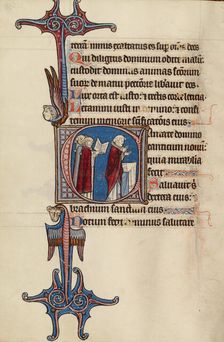 terram nimis exaltatus es sup omnes deos
Qui diligitis dominum odite malū
custodit dominus animas scōrum suorum
de manu peccatoris liberavit eos
Lux orta est iusto et rectis corde leticia
Letamini iusti in
mentori sanctificatiōis eius
antate domino
canticum novū
quia mirabilia
fecit
Salvavit s
dextera eius
brachium sanctum eius
Notum fecit dominus salutare